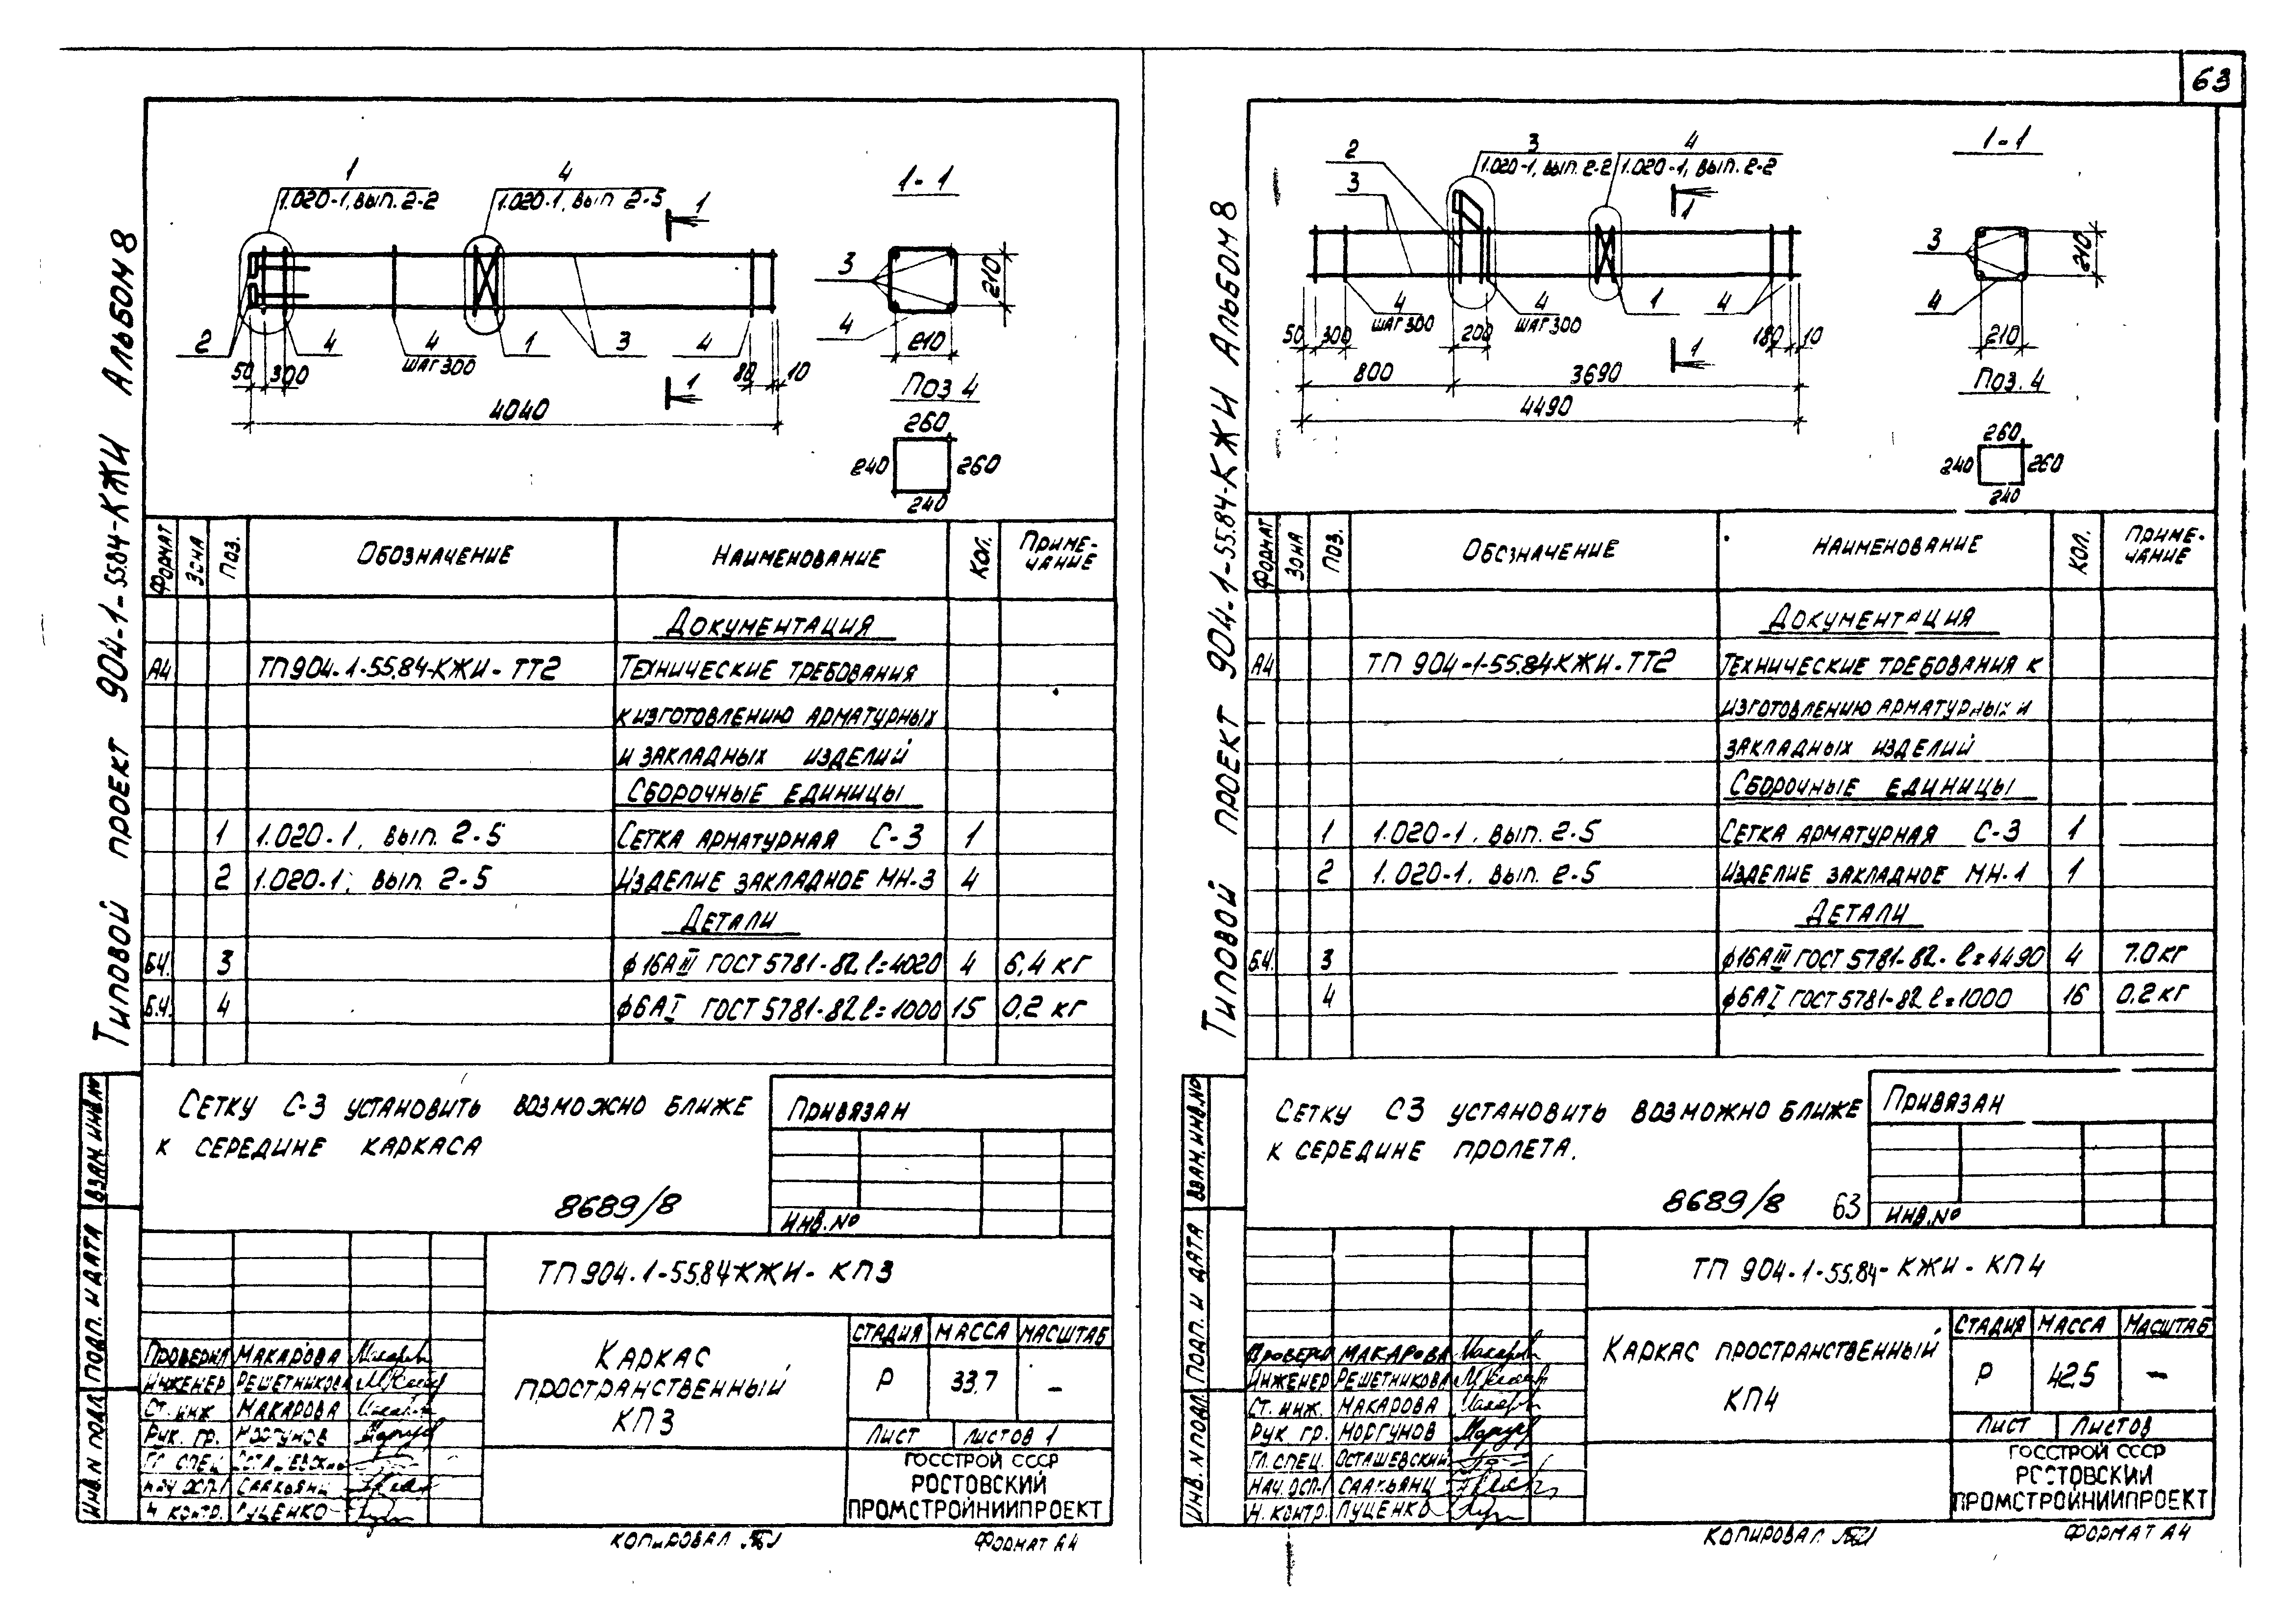 63
Типовой проект 904-1-55.84-КЖИ Альбом 8
1
1.020-1, вып. 2-2
4
1.020-1, вып 2-5
1
1-1
3
4
210
210
2
4
4
шаг 300
1
3
4
50
300
80
10
1
4040
Поз 4
260
240
260
240
Формат
Зона
Поз.
Обозначение
Наименование
Кол.
Приме-
чание
Документация
А4 ТП904-1-55.84-КЖИ-ТТ2 Технические требования
к изготовлению арматурных
и закладных изделий
Сборочные единицы
1 1.020-1, вып. 2-5 Сетка арматурная С-3 1
2 1.020-1, вып. 2-5 Изделие закладное МН-3 4
Детали
Б.Ч. 3 ф16АIII ГОСТ 5781-82 l=4020 4 6,4 кг
Б.Ч. 4 ф6АI ГОСТ 5781-82 l=1000 15 0,2 кг
Сетку С-3 установить возможно ближе
к середине каркаса
8689/8
Привязан
Инв.№
Взам. инв.№
Подп. и дата
Инв. № подл.
ТП904-1-55.84-КЖИ-КП3
Каркас
пространственный
КП3
Стадия Масса Масштаб
Р 33,7 –
Лист Листов 1
ГОССТРОЙ СССР
РОСТОВСКИЙ
ПРОМСТРОЙНИИПРОЕКТ
Проверил Макарова
Инженер Решетникова
Ст. инж Макарова
Рук. гр. Моргунов
Гл спец Осташевский
Нач осп-1 Саакьянц
Н контр. Луценко
Копировал
Формат А4
Типовой проект 904-1-55.84-КЖИ Альбом 8
2
3
3
1.020-1, вып. 2-2
4
1.020-1, вып. 2-2
1
1-1
3
4
210
210
4
шаг 300
4
шаг 300
1
4
50
300
200
180
10
1
800
3690
4490
Поз. 4
260
240
260
240
Формат
Зона
Поз.
Обозначение
Наименование
Кол.
Приме-
чание
Документация
А4 ТП 904-1-55.84-КЖИ-ТТ2 Технические требования к
изготовлению арматурных и
закладных изделий
Сборочные единицы
1 1.020-1, вып. 2-5 Сетка арматурная С-3 1
2 1.020-1, вып. 2-5 Изделие закладное МН-1 1
Детали
Б.Ч. 3 ф16АIII ГОСТ 5781-82. l=4490 4 7.0 кг
4 ф6АI ГОСТ 5781-82 l=1000 16 0,2 кг
Сетку С3 установить возможно ближе
к середине пролета.
8689/8 63
Привязан
Инв.№
Взам. инв.№
Подп. и дата
Инв. № подл.
ТП 904-1-55.84-КЖИ-КП4
Каркас пространственный
КП4
Стадия Масса Масштаб
Р 42,5 –
Лист Листов
ГОССТРОЙ СССР
РОСТОВСКИЙ
ПРОМСТРОЙНИИПРОЕКТ
Проверил Макарова
Инженер Решетникова
Ст. инж. Макарова
Рук гр. Моргунов
Гл. спец. Осташевский
Нач. осп-1 Саакьянц
Н. контр. Луценко
Копировал
Формат А4